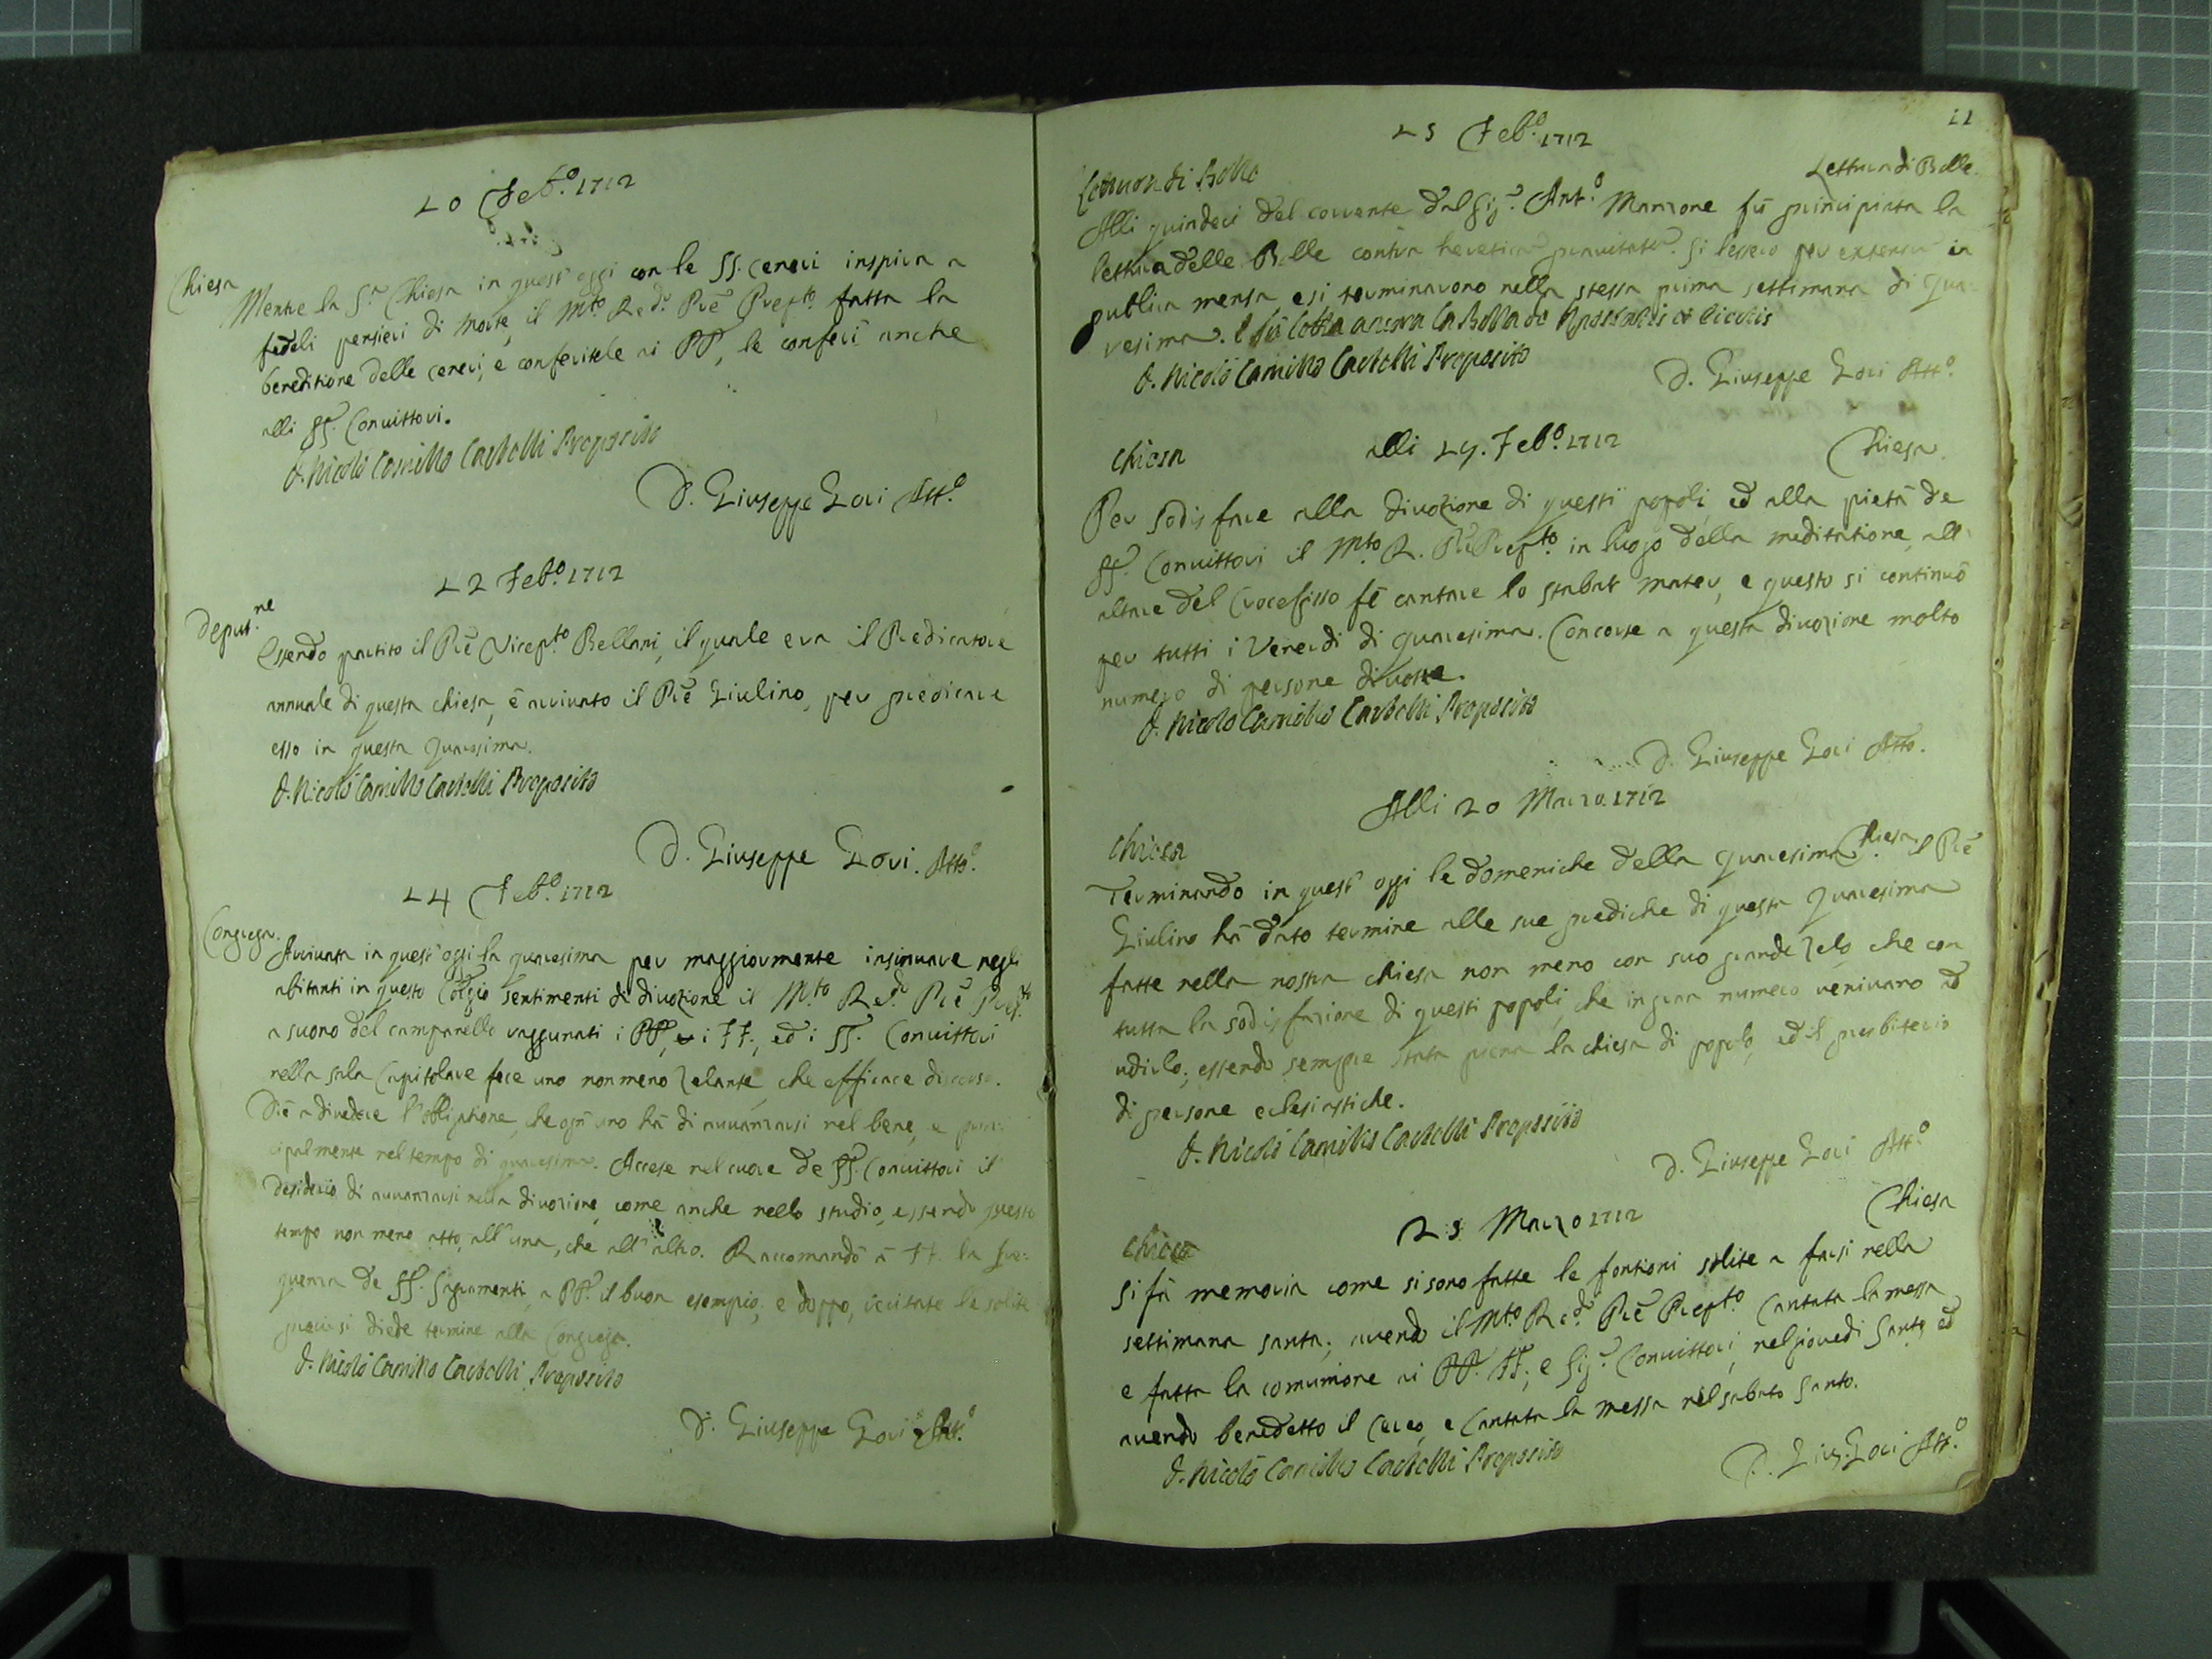 10 Feb.o 1712
Chiesa
Mentre la S.a Chiesa in quest'oggi con le SS. ceneri inspira a
fedeli pensieri di morte, il M.to Re.do Pre Prep.to fatta la
beneditione delle ceneri, e conferitele ai PP, le conferì anche
alli SS.ri Convittori.
D. Nicolò Camillo Castelli Preposito
D. Giuseppe Gori Att.o
12 Feb.o 1712
Deput.ne
Essendo partito il Pre Vicep.to Bellani, il quale era il Predicatore
annuale di questa chiesa, è arrivato il Pre Giulino, per predicare
esso in questa quaresima.
D. Nicolò Camillo Castelli Preposito
D. Giuseppe Gori. Atto.
14 Feb.o 1712
Congrega.
Arrivata in quest'oggi la quaresima per maggiormente insinuare negli
abitanti in questo Col.gio sentimenti di divozione il M.to Re.do Pre Prep.to
a suono del campanello raggunati i PP, e i FF., ed i SS.ri Convittori
nella sala Capitolare fece uno non meno zelante, che efficace discorso.
Diè a divedere l'obbligatione, che ogn'uno hà di avvanzarsi nel bene, e prin:
cipalmente nel tempo di quaresima. Accese nel cuore de SS.ri Convittori il
desiderio di avvanzarsi nella divozione, come anche nello studio, essendo questo
tempo non meno atto all'una, che all'altro. Raccomandò à FF. la fre:
quenza de SS. Sagramenti, a PP. il buon esempio, e doppo, recitate le solite
preci si diede termine alla Congrega.
D. Nicolò Camillo Castelli Preposito
D. Giuseppe Gori Att.o
11
15 Feb.o 1712
Lettura di Bolle
Lettura di Bolle.
Alli quindeci del corrente dal Sig.r Ant.o Manzone fù principiata la
lettura delle Bolle contra heretica pravitate. Si lessero per extensum in
publica mensa, e si terminarono nella stessa prima settimana di Qua:
resima. E fù letta ancora la Bolla de Apostatis et eiectis
D. Nicolò Camillo Castelli Preposito
D. Giuseppe Gori Att.o
alli 19. Feb.o 1712
Chiesa
Chiesa.
Per sodisfare alla divozione di questi popoli, ed alla pietà de
SS.ri Convittori il M.to R. Pre Prep.to in luogo della meditatione, all'
altare del Crocefisso fè cantare lo stabat mater, e questo si continuò
per tutti i Venerdì di quaresima. Concorse a questa divozione molto
numero di persone divote.
D. Nicolò Camillo Castelli Preposito
D. Giuseppe Gori Atto.
Alli 20 Marzo. 1712
Chiesa
Chiesa
Terminando in quest'oggi le domeniche della quaresima. Il Pre
Giulino hà dato termine alle sue prediche di questa Quaresima
fatte nella nostra chiesa non meno con suo grande zelo, che con
tutta la sodisfazione di questi popoli, che in gran numero venivano ad
udirlo, essendo sempre stata piena la chiesa di popolo, ed il presbiterio
di persone eclesiastiche.
D. Nicolò Camillo Castelli Preposito
D. Giuseppe Gori Att.o
25 Marzo 1712
Chiesa
Chiesa
Si fà memoria come si sono fatte le fontioni solite a farsi nella
settimana santa; avendo il M.to Re.do Pre Prep.to Cantata la messa
e fatta la comunione ai PP. FF., e Sig.ri Convittori, nel giovedì Santo, ed
avendo benedetto il Cereo, e Cantata la messa nel sabato santo.
D. Nicolò Camillo Castelli Preposito
D. Gius. Gori Att.o